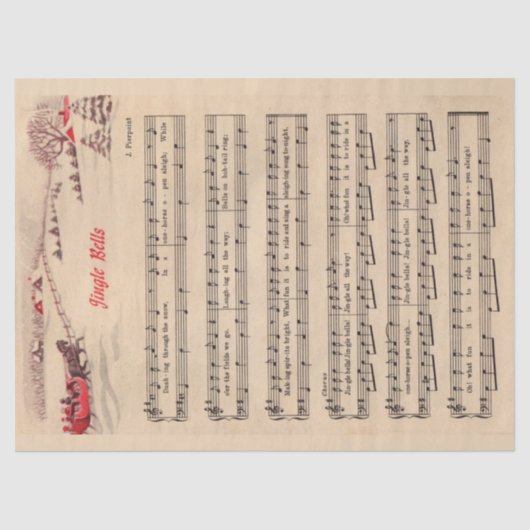 Jingle Bells
J. Pierpoint
Dash-ing through the snow, In a one-horse o - pen sleigh; While
o'er the fields we go, Laugh-ing all the way; Bells on bob-tail ring;
Mak-ing spir-its bright, What fun it is to ride and sing a sleigh-ing song to-night.
Chorus
Jin-gle bells! Jin-gle bells! Jin-gle all the way! Oh! what fun it is to ride in a
one-horse o-pen sleigh... Jin-gle bells! Jin-gle bells! Jin-gle all the way,
Oh! what fun it is to ride in a one-horse o - pen sleigh!